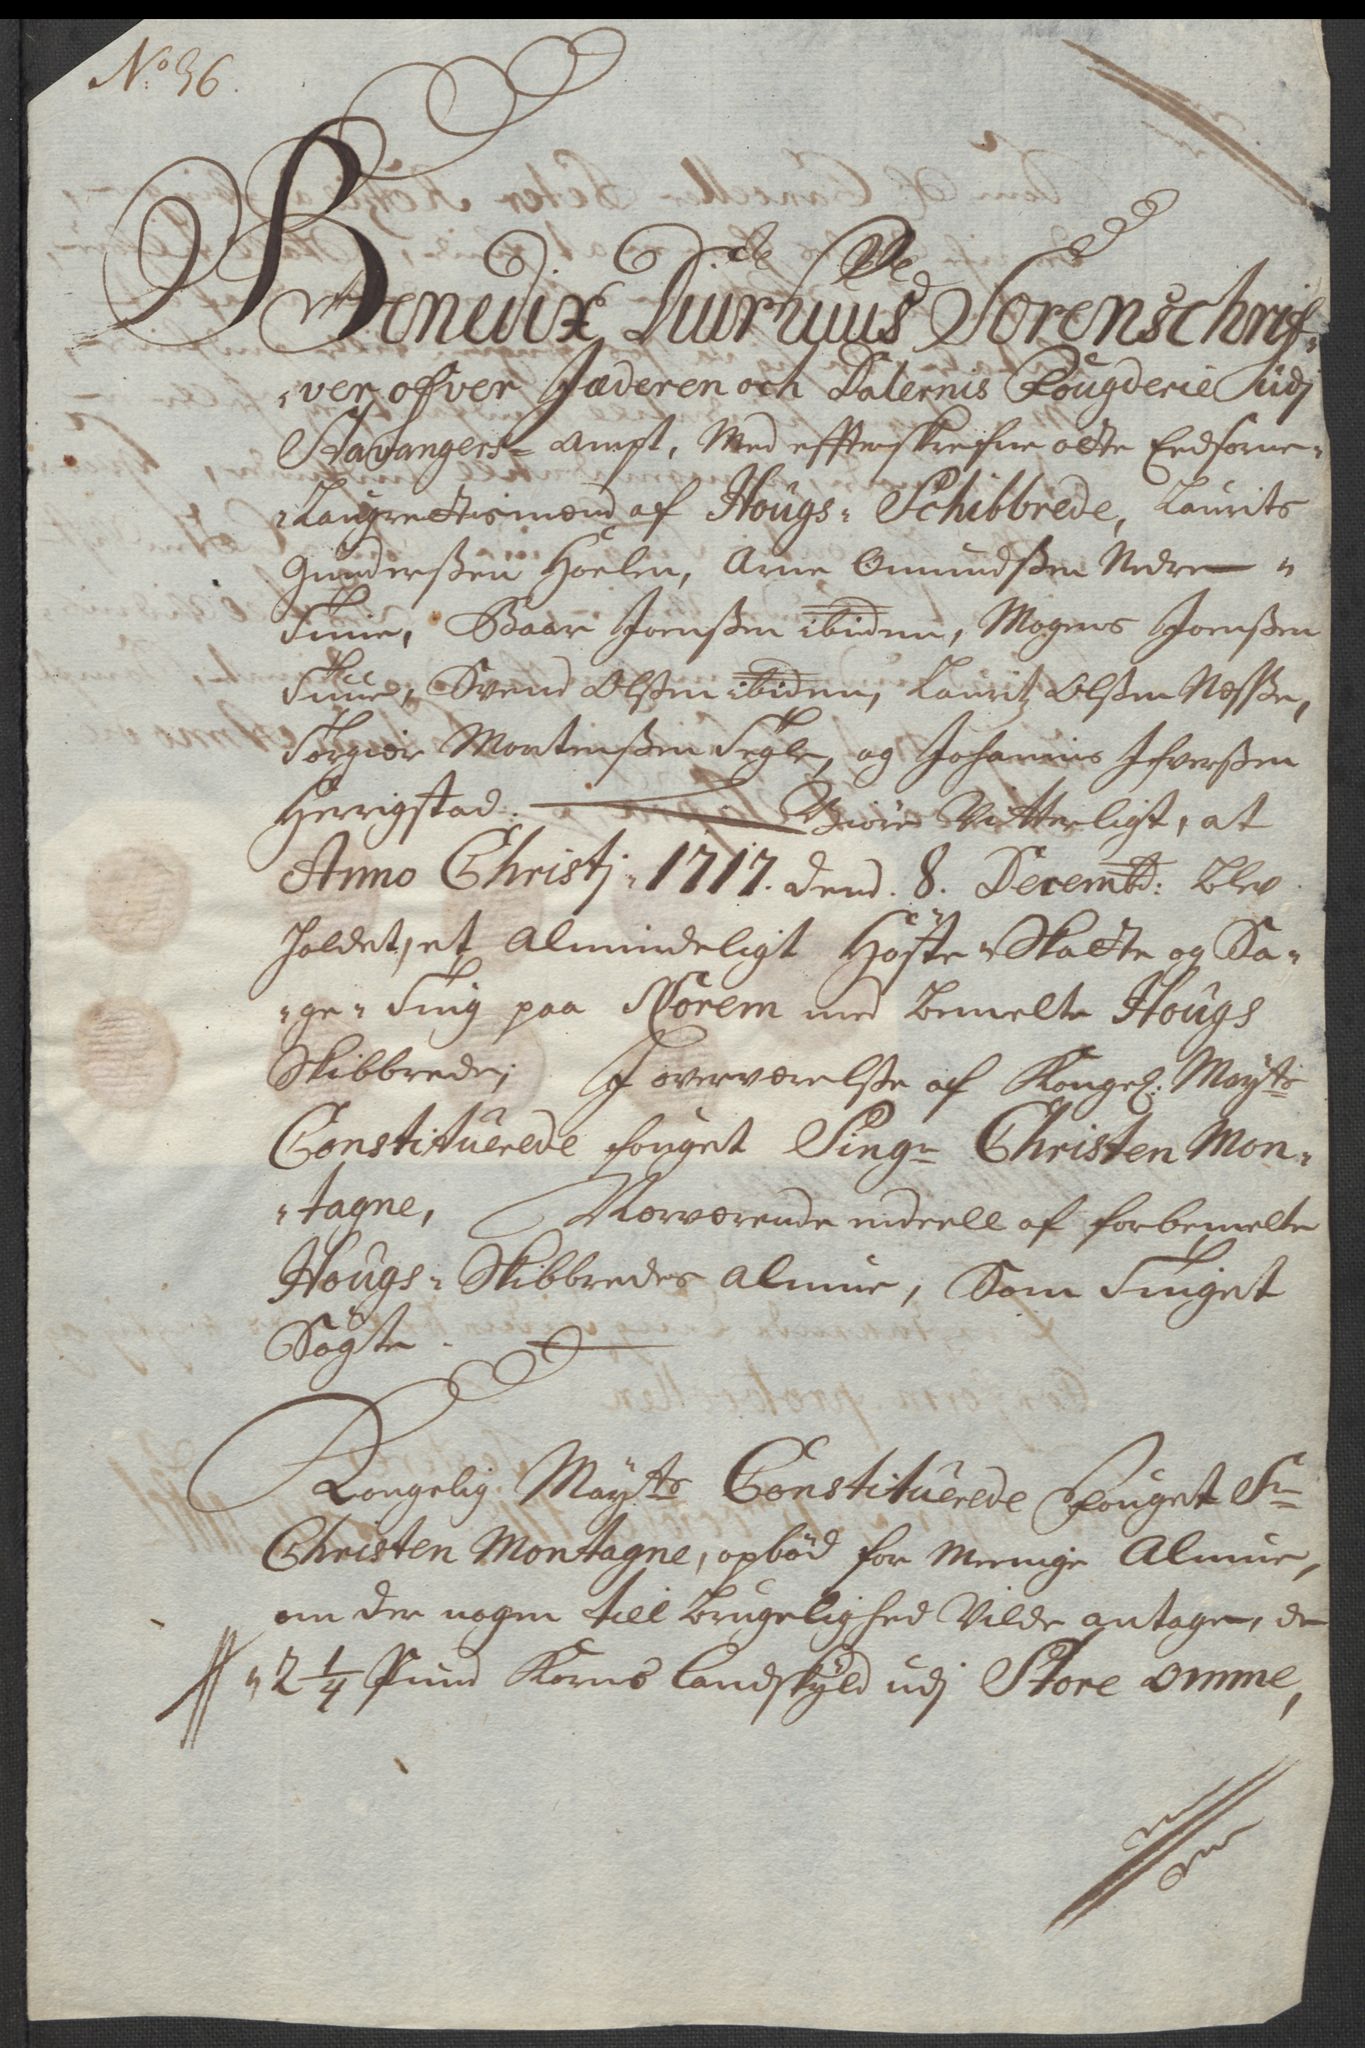 No 36.
Benedix Diuruus Sorenschrif„
„ver ofver Jæderen och Dalernis Fougderie udj
Stavangers= Ampt, Med effterskrefne otte Eedsorne„
„Laugrettismænd af Hougs= Schibbrede, Laurits
Gunderßen Hoelen, Arne Omundßen Nedre „
Tuue, Baar Joenßen ibidem, Mogens Joenßen
Tuue, Svend Olßen ibidem, Lauritz Olßen Næsse,
Torgier Mortenßen Segle, og Johannis Ifverßen
Herrigstad. Giøre Vitterligt, at
Anno Christj 1717. dend. 8. Decembd: blev
holdet, et Almindeligt Høste„ Skatte og Sa„
„ge„ Ting paa Norem med bemelte Hougs
Skibbrede; I overværelße af Kongel: Mayts
Constituerede fouget Singr Christen Mon„
„tagne, Nærværende endeell af forbemelte
Hougs= Skibbredes Almue, Som Tinget
Søgte.
Kongelig Mayts Constituerede Fouget Sr
Christen Montagne, opbød for Meenige Almue,
om der nogen till brugelighed Vilde antage, de
„2 1/4 Pund Korns Landskyld udj Store Omme,